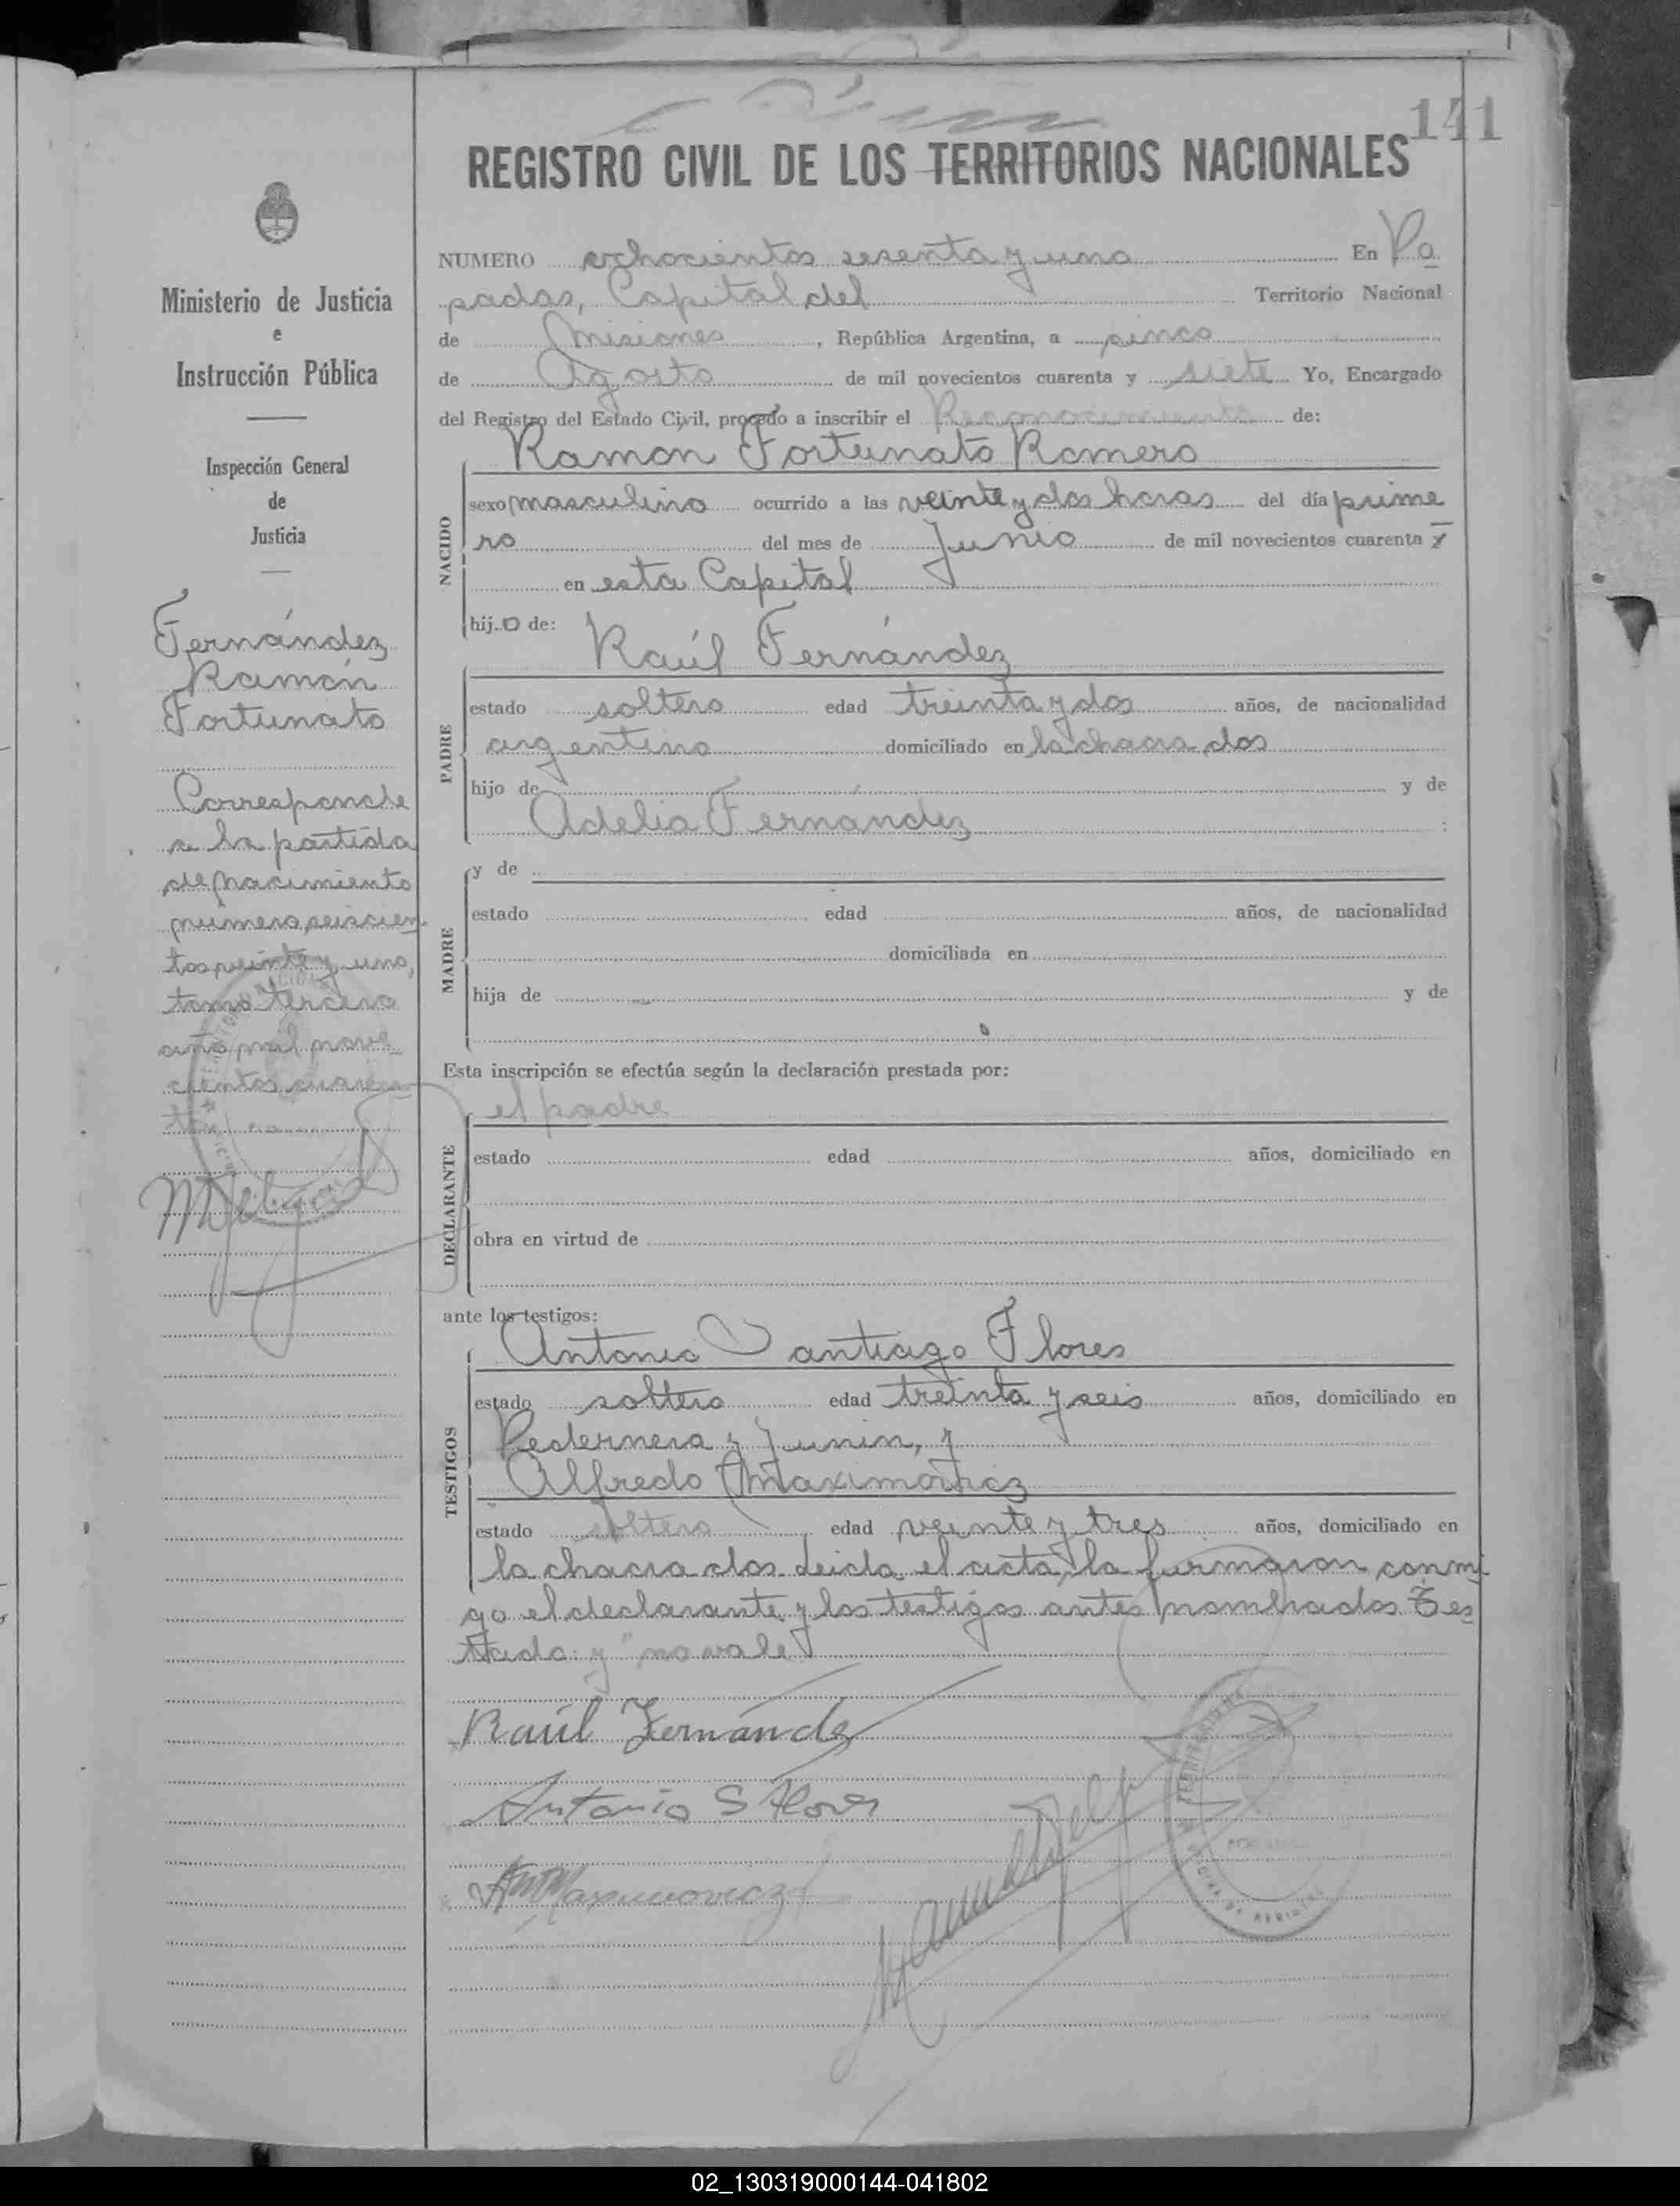 141
REGISTRO CIVIL DE LOS TERRITORIOS NACIONALES
Ministerio de Justicia
e
Instrucción Pública
Inspección General
de
Justicia
Fernández
Ramón
Fortunato
Corresponde
a la partida
de nacimiento
número seiscien
tos veinte y uno,
tomo tercero
año mil nove
cientos cuaren
ta
NUMERO ochocientos sesenta y uno En Po
sadas, Capital del Territorio Nacional
de Misiones, República Argentina, a cinco
de Agosto de mil novecientos cuarenta y siete Yo, Encargado
del Registro del Estado Civil, procedo a inscribir el Reconocimiento de:
NACIDO
Ramon Fortunato Romero
sexo masculino ocurrido a las veinte y dos horas del día prime
ro del mes de Junio de mil novecientos cuarenta y
en esta Capital
hijo de:
PADRE
Raúl Fernández
estado soltero edad treinta y dos años, de nacionalidad
argentino domiciliado en la chacra dos
hijo de y de
Adelia Fernández
MADRE
y de
estado edad años, de nacionalidad
domiciliada en
hija de y de
Esta inscripción se efectúa según la declaración prestada por:
DECLARANTE
el padre
estado edad años, domiciliado en
obra en virtud de
ante los testigos:
TESTIGOS
Antonio Santiago Flores
estado soltero edad treinta y seis años, domiciliado en
Pedernera y Junin, y
Alfredo
estado soltero edad veinte y tres años, domiciliado en
la chacra dos. Leida el acta, la firmaron conmi
go el declarante y los testigos antes nombrados Tes
tado: y "no vale
Raúl Fernández
Antonio S Flores
02_130319000144-041802